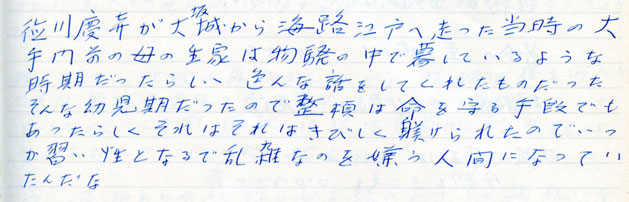 徳川慶喜が大坂城から海路江戸へ走った当時の大
手門前の母の生家は物騒の中で暮しているような
時期だったらしい 色んな話をしてくれたものだった
そんな幼児期だったので整頓は命を守る手段でも
あったらしくそれはそれはきびしく躾けられたのでいつ
か習い性となるで乱雑なのを嫌う人間になってい
たんだな